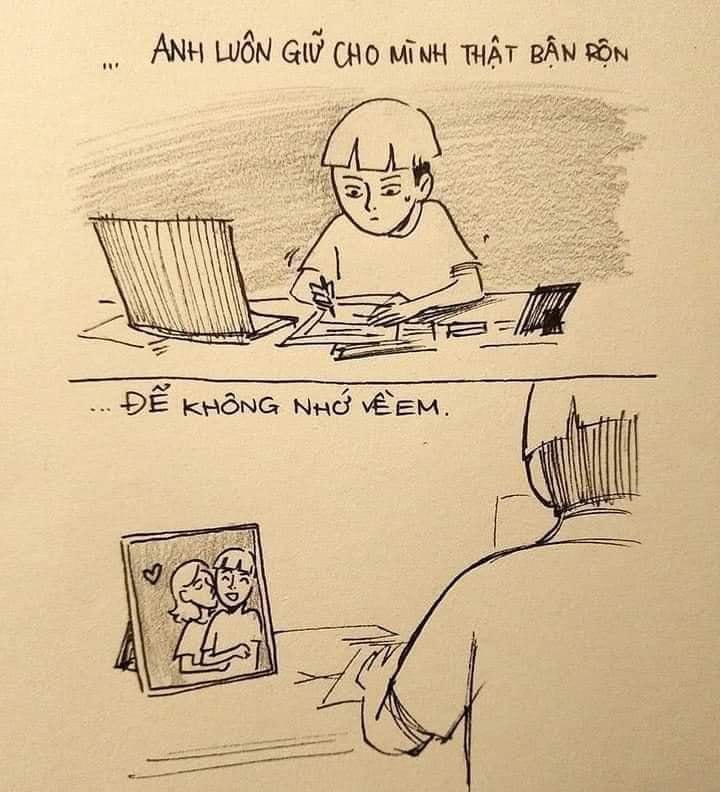 ... ANH LUÔN GIỮ CHO MÌNH THẬT BẬN RỘN
... ĐỂ KHÔNG NHỚ VỀ EM.